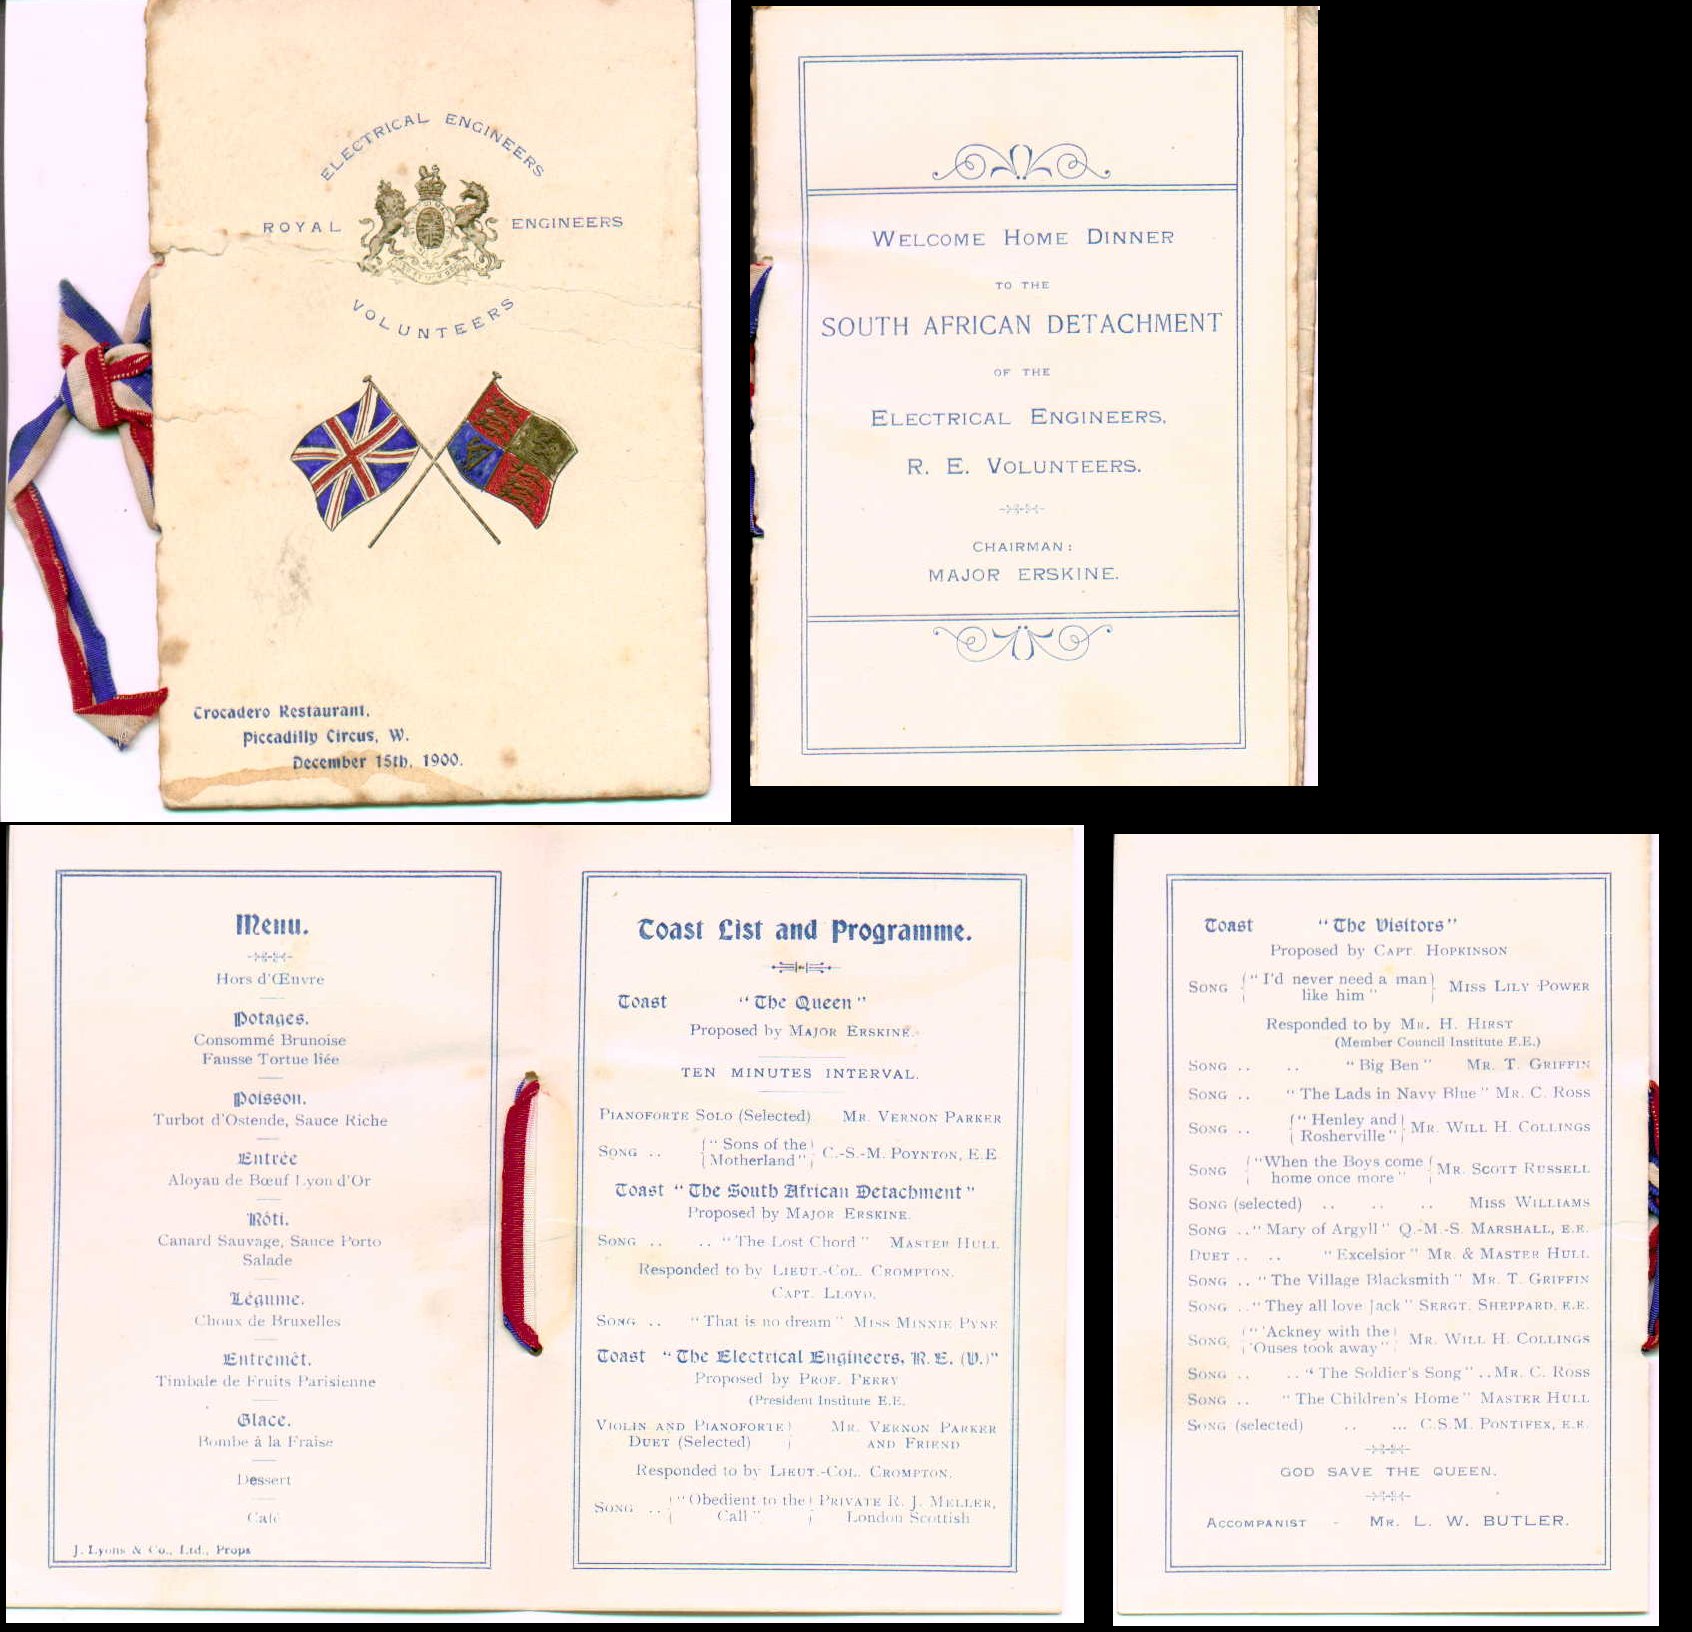 ELECTRICAL ENGINEERS
ROYAL ENGINEERS
VOLUNTEERS
Trocadero Restaurant,
Piccadilly Circus, W.
December 15th, 1900.
WELCOME HOME DINNER
TO THE
SOUTH AFRICAN DETACHMENT
OF THE
ELECTRICAL ENGINEERS,
R. E. VOLUNTEERS.
CHAIRMAN:
MAJOR ERSKINE.
Menu.
Hors d'Œuvre
Potages.
Consommé Brunoise
Fausse Tortue liée
Poisson.
Turbot d'Ostende, Sauce Riche
Entrée
Aloyau de Bœuf Lyon d'Or
Rôti.
Canard Sauvage, Sauce Porto
Salade
Légume.
Choux de Bruxelles
Entremêt.
Timbale de Fruits Parisienne
Glace.
Bombe à la Fraise
Dessert
Café
J. Lyons & Co., Ltd., Props
Toast List and Programme.
Toast "The Queen"
Proposed by MAJOR ERSKINE.
TEN MINUTES INTERVAL.
PIANOFORTE SOLO (Selected) MR. VERNON PARKER
SONG .. "Sons of the Motherland" C.-S.-M. POYNTON, E.E
Toast "The South African Detachment"
Proposed by MAJOR ERSKINE.
SONG .. .. "The Lost Chord" MASTER HULL
Responded to by LIEUT.-COL. CROMPTON.
CAPT. LLOYD.
SONG .. "That is no dream" MISS MINNIE PYNE
Toast "The Electrical Engineers, R. E. (V.)"
Proposed by PROF. PERRY
(President Institute E.E.
VIOLIN AND PIANOFORTE MR. VERNON PARKER
DUET (Selected) AND FRIEND
Responded to by LIEUT.-COL. CROMPTON.
SONG .. "Obedient to the PRIVATE R. J. MELLER,
Call" London Scottish
Toast "The Visitors"
Proposed by CAPT HOPKINSON
SONG "I'd never need a man like him" MISS LILY POWER
Responded to by MR. H. HIRST
(Member Council Institute E.E.)
SONG .. .. "Big Ben" MR. T. GRIFFIN
SONG .. "The Lads in Navy Blue" MR. C. ROSS
SONG .. "Henley and Rosherville" MR. WILL H. COLLINGS
SONG "When the Boys come home once more" MR. SCOTT RUSSELL
SONG (selected) .. .. .. MISS WILLIAMS
SONG .. "Mary of Argyll" Q.-M.-S. MARSHALL, E.E.
DUET .. .. "Excelsior" MR. & MASTER HULL
SONG .. "The Village Blacksmith" MR. T. GRIFFIN
SONG .. "They all love Jack" SERGT. SHEPPARD, E.E.
SONG "'Ackney with the 'Ouses took away" MR. WILL H. COLLINGS
SONG .. .. "The Soldier's Song" .. MR. C. ROSS
SONG .. "The Children's Home" MASTER HULL
SONG (selected) .. ... C.S.M. PONTIFEX, E.E.
GOD SAVE THE QUEEN.
ACCOMPANIST - MR. L. W. BUTLER.